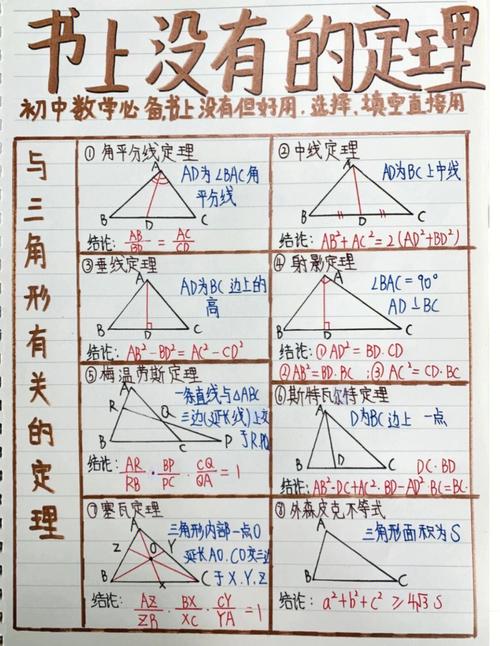 书上没有的定理
初中数学必备,书上没有但好用.选择、填空直接用
与三角形有关的定理
① 角平分线定理
A
AD为∠BAC角
平分线
B D C
结论: AB/BD = AC/CD
② 中线定理
A
AD为BC上中线
B D C
结论: AB²+AC²=2(AD²+BD²)
③垂线定理
A
AD为BC边上的
高
B D C
结论: AB²-BD²=AC²-CD²
④ 射影定理
A
∠BAC=90°
AD⊥BC
B D C
结论:①AD²=BD·CD
②AB²=BD·BC ;③AC²=CD·BC
⑤梅涅劳斯定理
A
一条直线与△ABC
三边(延长线)上交
于R.P.Q
R Q
B C P
结论: AR/RB · BP/PC · CQ/QA =1
⑥斯特瓦尔特定理
A
D为BC边上一点
B D C
DC·BD
结论:AB²·DC+AC²·BD-AD²·BC=BC·
⑦塞瓦定理
A
三角形内部一点O
延长AO.CO交三边
于X.Y.Z
Z O Y
B X C
结论: AZ/ZB · BX/XC · CY/YA =1
⑧外森皮克不等式
A
三角形面积为S
B C
结论: a²+b²+c²≥4√3 S